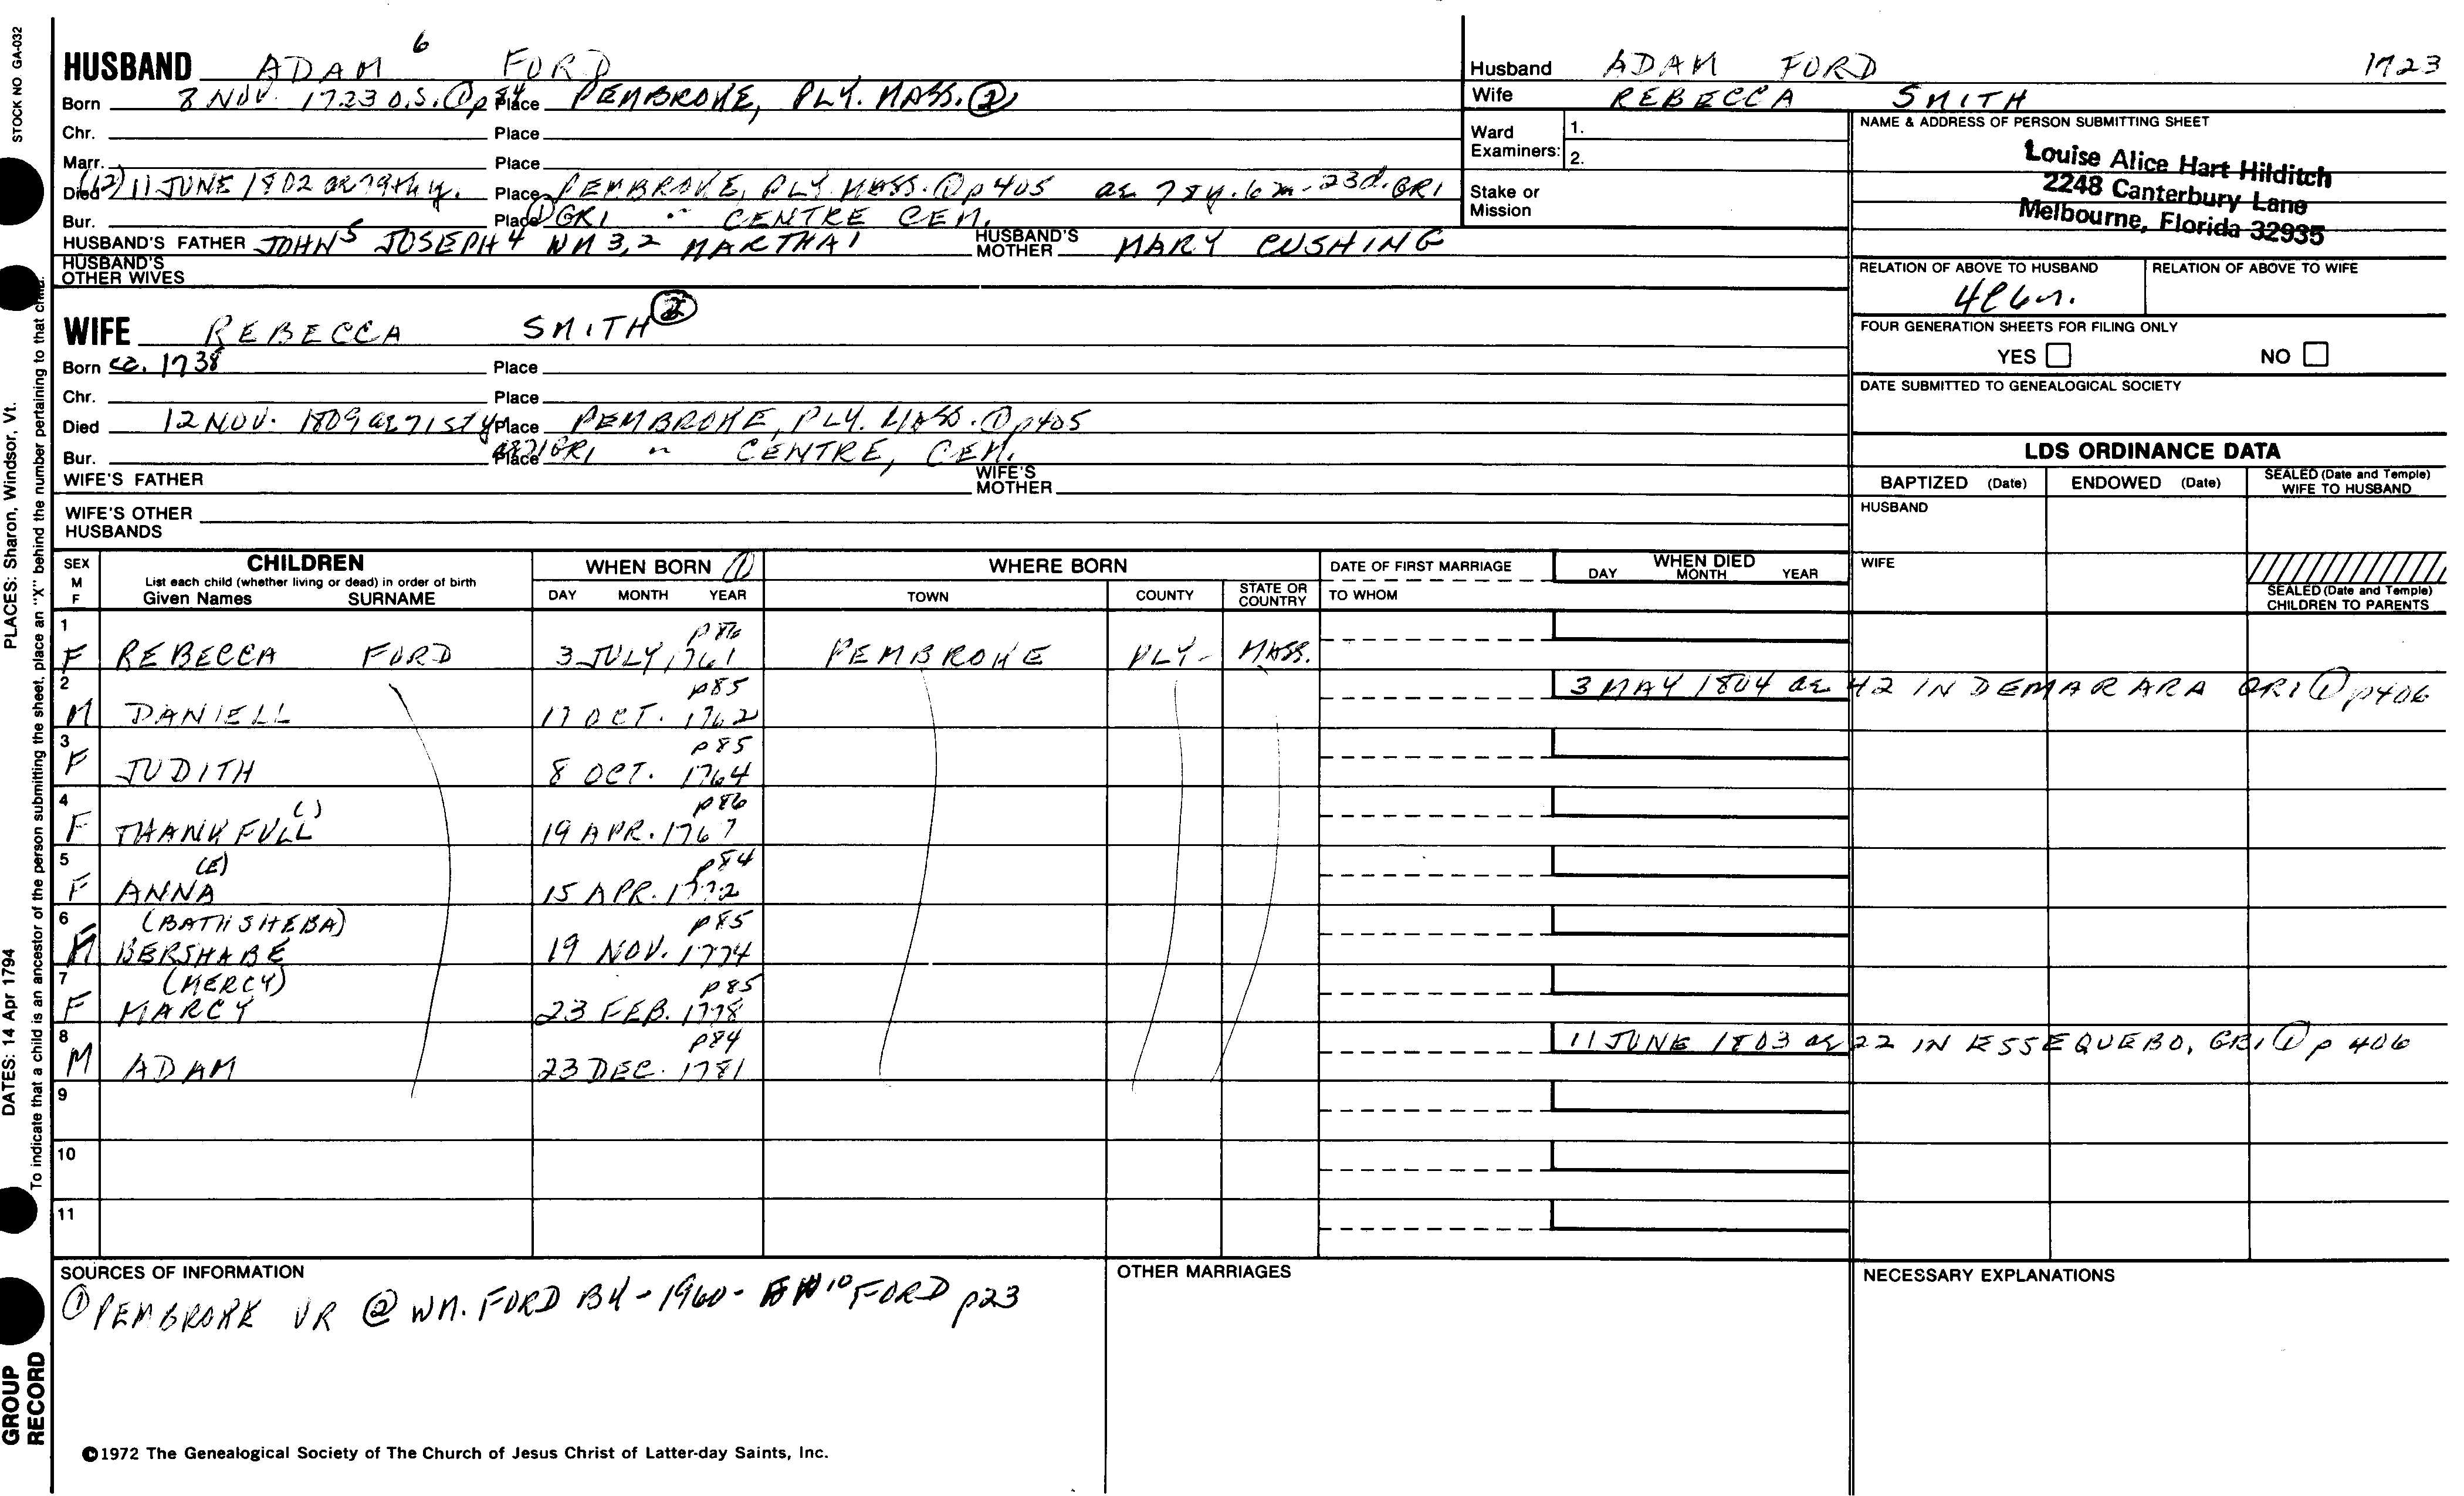 STOCK NO GA-032
PLACES: Sharon, Windsor, Vt.
DATES: 14 Apr 1794
To indicate that a child is an ancestor of the person submitting the sheet, place an "X" behind the number pertaining to that child.
GROUP RECORD
HUSBAND ADAM 6 FORD
Born 8 NOV. 1723 O.S. ① p 84 Place PEMBROKE, PLY. MASS. ②
Chr. Place
Marr. Place
Died (12) 11 JUNE 1802 ae 79th y. Place PEMBROKE, PLY. MASS. ① p 405 ae 78y. 6m. 23d. GR1
Bur. Place ① GR1 " CENTRE CEM.
HUSBAND'S FATHER JOHN 5 JOSEPH 4 WM 3, 2 MARTHA 1 HUSBAND'S MOTHER MARY CUSHING
HUSBAND'S OTHER WIVES
WIFE REBECCA SMITH ②
Born ca. 1738 Place
Chr. Place
Died 12 NOV. 1809 ae 71st y Place PEMBROKE, PLY. MASS. ① p405
Bur. Place GR1 " CENTRE, CEM.
WIFE'S FATHER WIFE'S MOTHER
WIFE'S OTHER HUSBANDS
Husband ADAM FORD 1723
Wife REBECCA SMITH
Ward Examiners: 1. 2.
Stake or Mission
NAME & ADDRESS OF PERSON SUBMITTING SHEET
Louise Alice Hart Hilditch
2248 Canterbury Lane
Melbourne, Florida 32935
RELATION OF ABOVE TO HUSBAND RELATION OF ABOVE TO WIFE
FOUR GENERATION SHEETS FOR FILING ONLY
YES NO
DATE SUBMITTED TO GENEALOGICAL SOCIETY
LDS ORDINANCE DATA
BAPTIZED (Date) ENDOWED (Date) SEALED (Date and Temple) WIFE TO HUSBAND
HUSBAND
WIFE
SEALED (Date and Temple) CHILDREN TO PARENTS
SEX M F
CHILDREN
List each child (whether living or dead) in order of birth
Given Names SURNAME
WHEN BORN ①
DAY MONTH YEAR
WHERE BORN
TOWN COUNTY STATE OR COUNTRY
DATE OF FIRST MARRIAGE
TO WHOM
WHEN DIED
DAY MONTH YEAR
1 p86
F REBECCA FORD 3 JULY 1761 PEMBROKE PLY- MASS.
2 p85 3 MAY 1804 ae 42 IN DEMARARA GR1 ① p406
M DANIELL 17 OCT. 1762
3 p85
F JUDITH 8 OCT. 1764
4 ( ) p86
F THANKFULL 19 APR. 1767
5 (E) p84
F ANNA 15 APR. 1772
6 (BATHSHEBA) p85
F BERSHABE 19 NOV. 1774
7 (MERCY) p85
F MARCY 23 FEB. 1778
8 p84 11 JUNE 1803 ae 22 IN ESSEQUEBO, GR1 ① p 406
M ADAM 23 DEC. 1781
9
10
11
SOURCES OF INFORMATION
① PEMBROKE VR ② WM. FORD BY - 1960 - 10 FORD p23
OTHER MARRIAGES
NECESSARY EXPLANATIONS
©1972 The Genealogical Society of The Church of Jesus Christ of Latter-day Saints, Inc.